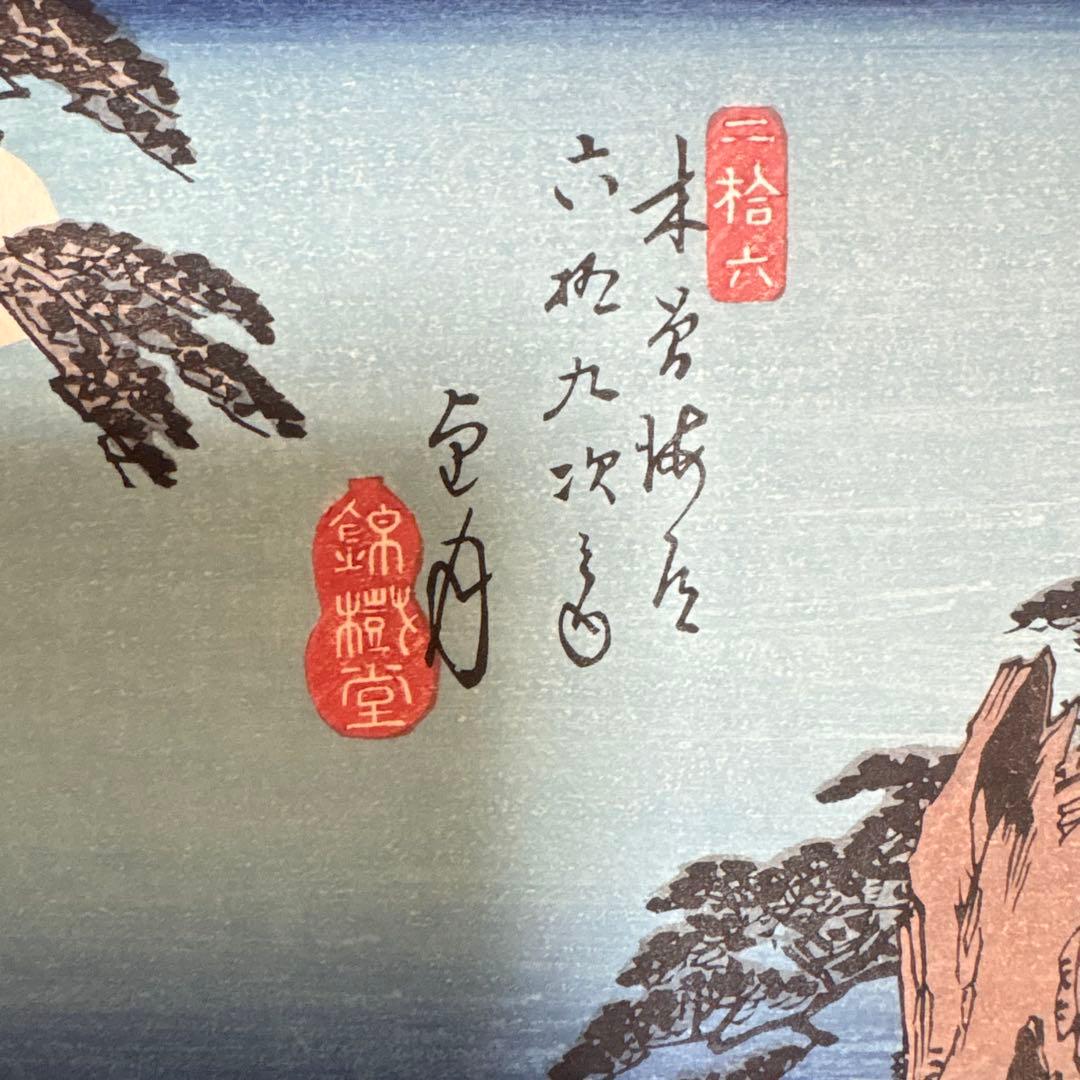 二拾六
木曾海道
六拾九次之内
望月
錦樹堂